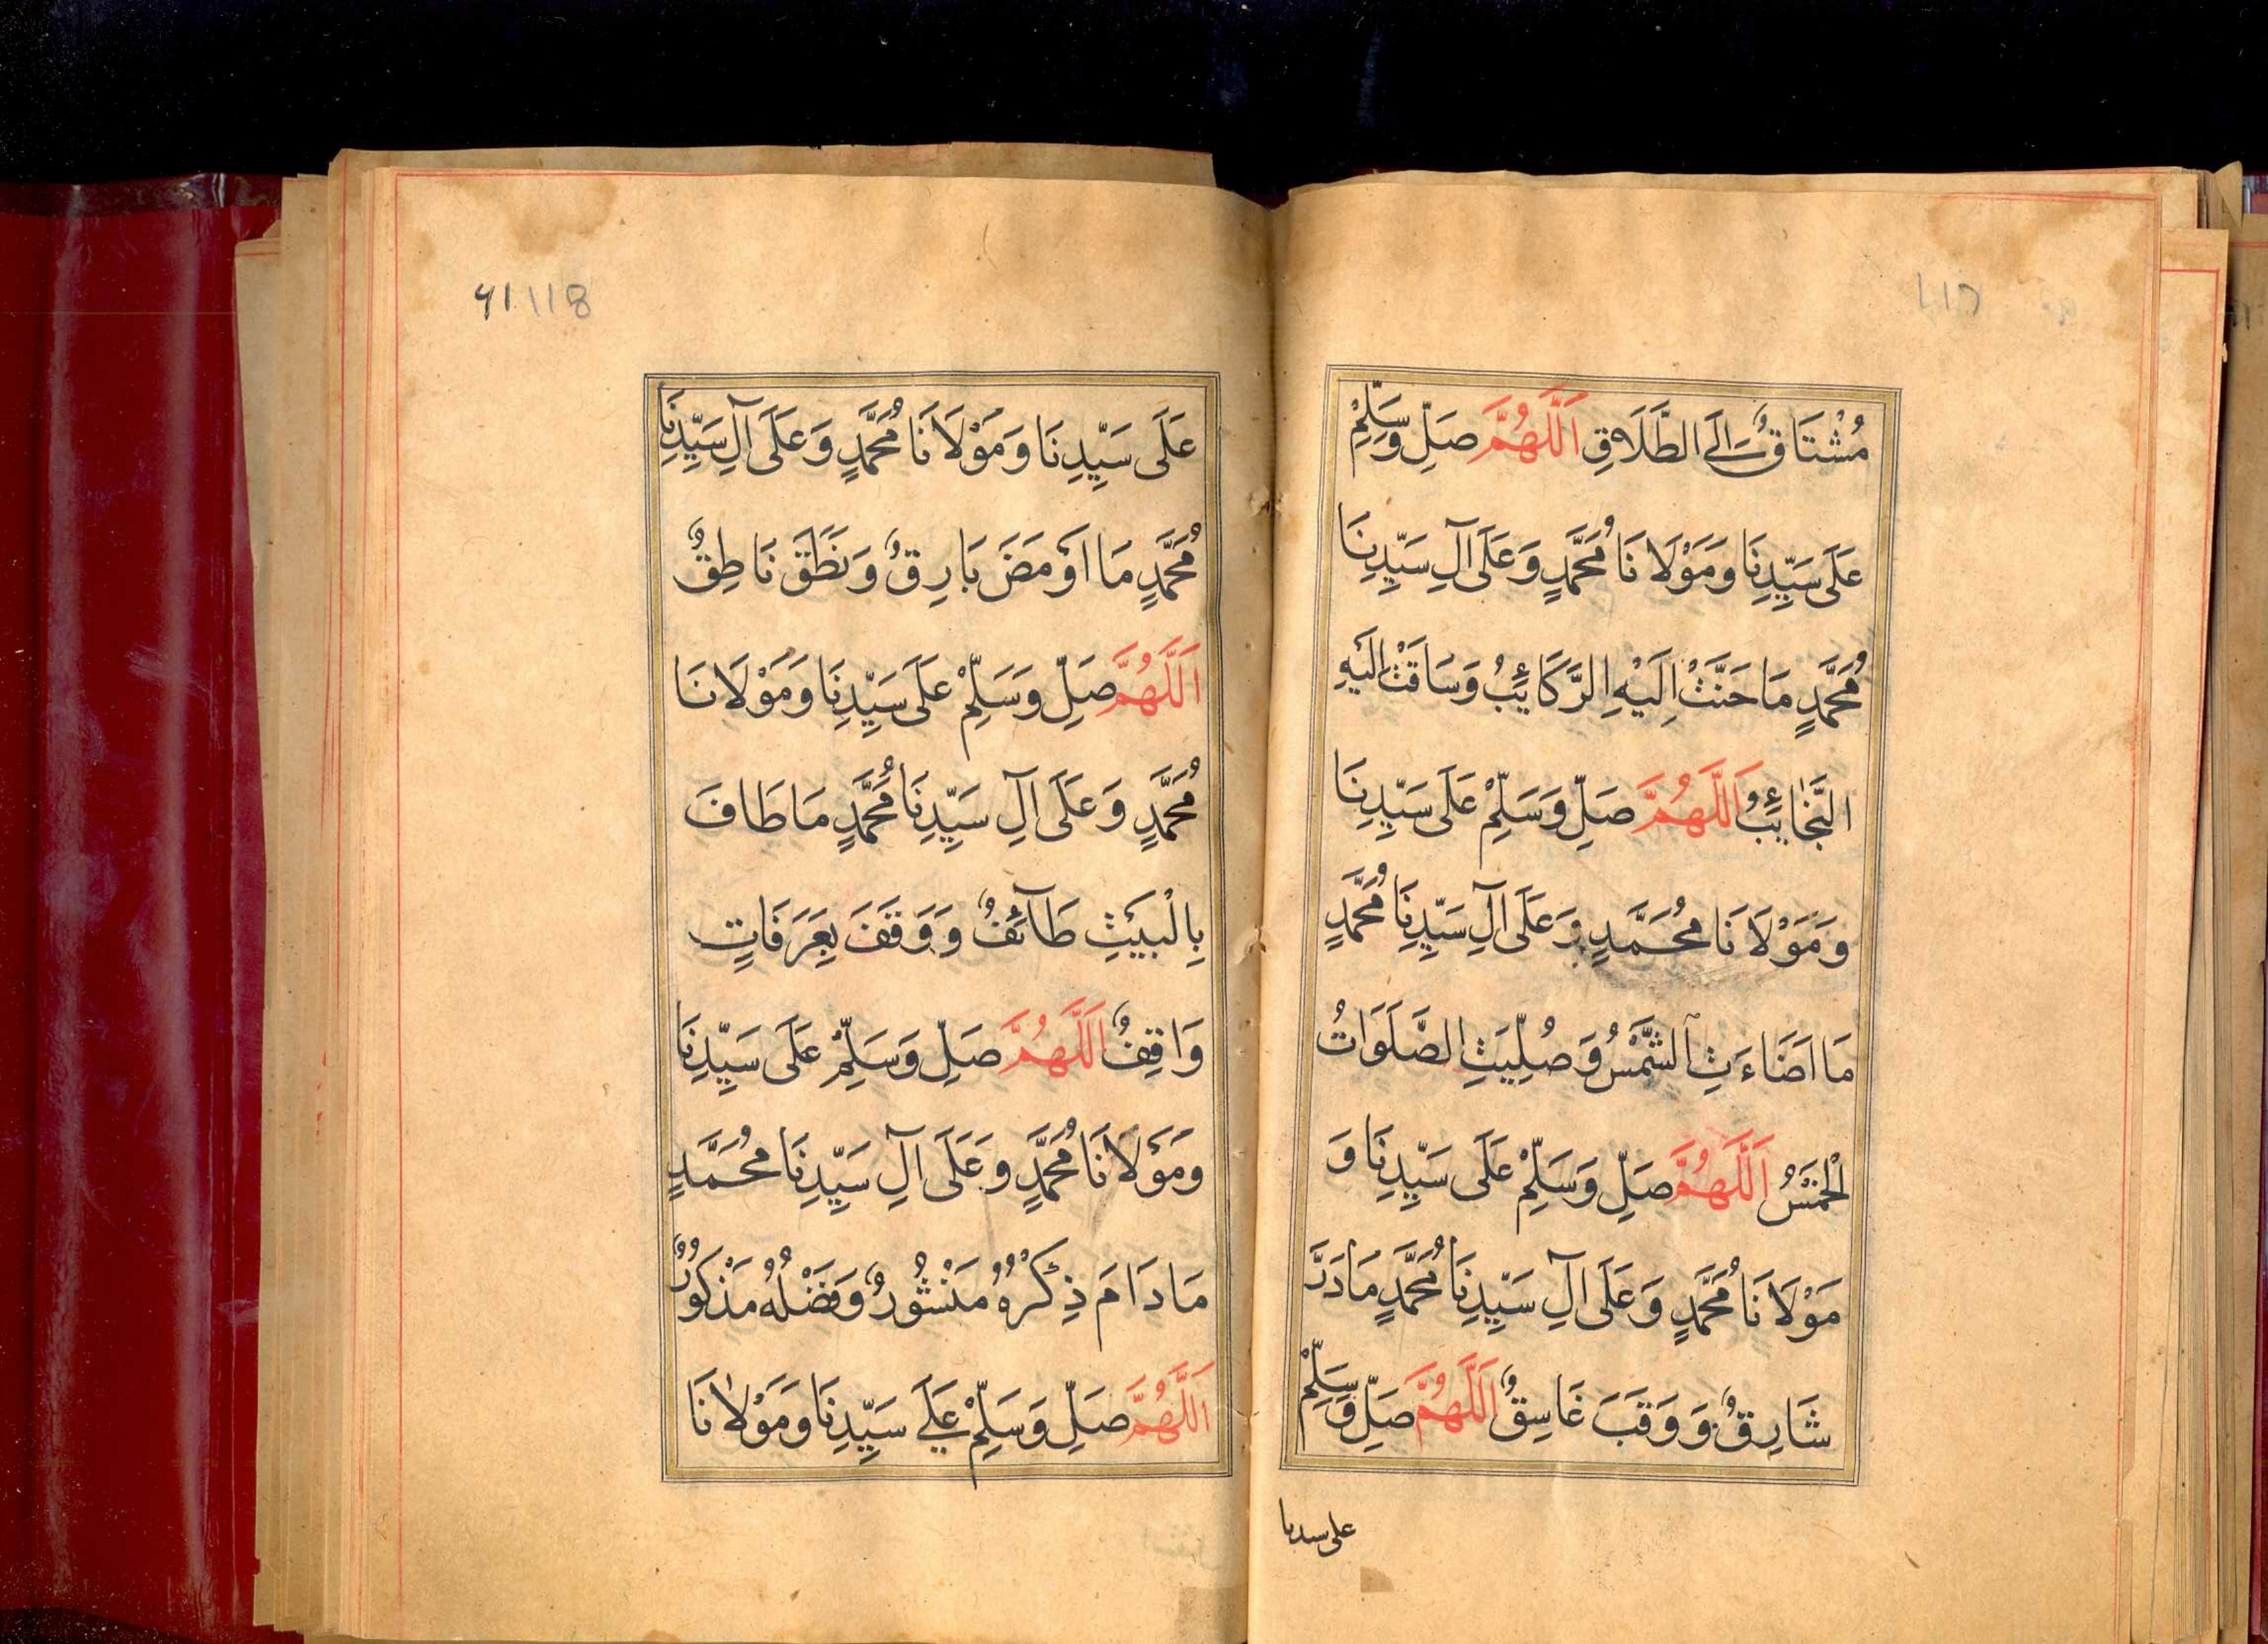 مُشْتَاقٌ اِلَى الطَّلَاقِ اَللّٰهُمَّ صَلِّ وَسَلِّمْ
عَلَى سَيِّدِنَا وَمَوْلَانَا مُحَمَّدٍ وَعَلَى آلِ سَيِّدِنَا
مُحَمَّدٍ مَا حَنَّتْ اِلَيْهِ الرَّكَائِبُ وَسَاقَتْ اِلَيْهِ
النَّجَائِبُ اَللّٰهُمَّ صَلِّ وَسَلِّمْ عَلَى سَيِّدِنَا
وَمَوْلَانَا مُحَمَّدٍ وَعَلَى آلِ سَيِّدِنَا مُحَمَّدٍ
مَا اَضَاءَتِ الشَّمْسُ وَصُلِّيَتِ الصَّلَوَاتُ
الْخَمْسُ اَللّٰهُمَّ صَلِّ وَسَلِّمْ عَلَى سَيِّدِنَا وَ
مَوْلَانَا مُحَمَّدٍ وَعَلَى آلِ سَيِّدِنَا مُحَمَّدٍ مَا دَرَّ
شَارِقٌ وَوَقَبَ غَاسِقٌ اَللّٰهُمَّ صَلِّ وَسَلِّمْ
على سيدنا
٦١ 118
عَلَى سَيِّدِنَا وَمَوْلَانَا مُحَمَّدٍ وَعَلَى آلِ سَيِّدِنَا
مُحَمَّدٍ مَا اَوْمَضَ بَارِقٌ وَنَطَقَ نَاطِقٌ
اَللّٰهُمَّ صَلِّ وَسَلِّمْ عَلَى سَيِّدِنَا وَمَوْلَانَا
مُحَمَّدٍ وَعَلَى آلِ سَيِّدِنَا مُحَمَّدٍ مَا طَافَ
بِالْبَيْتِ طَآئِفٌ وَوَقَفَ بِعَرَفَاتٍ
وَاقِفٌ اَللّٰهُمَّ صَلِّ وَسَلِّمْ عَلَى سَيِّدِنَا
وَمَوْلَانَا مُحَمَّدٍ وَعَلَى آلِ سَيِّدِنَا مُحَمَّدٍ
مَا دَامَ ذِكْرُهُ مَنْشُورٌ وَفَضْلُهُ مَذْكُورٌ
اَللّٰهُمَّ صَلِّ وَسَلِّمْ عَلَى سَيِّدِنَا وَمَوْلَانَا